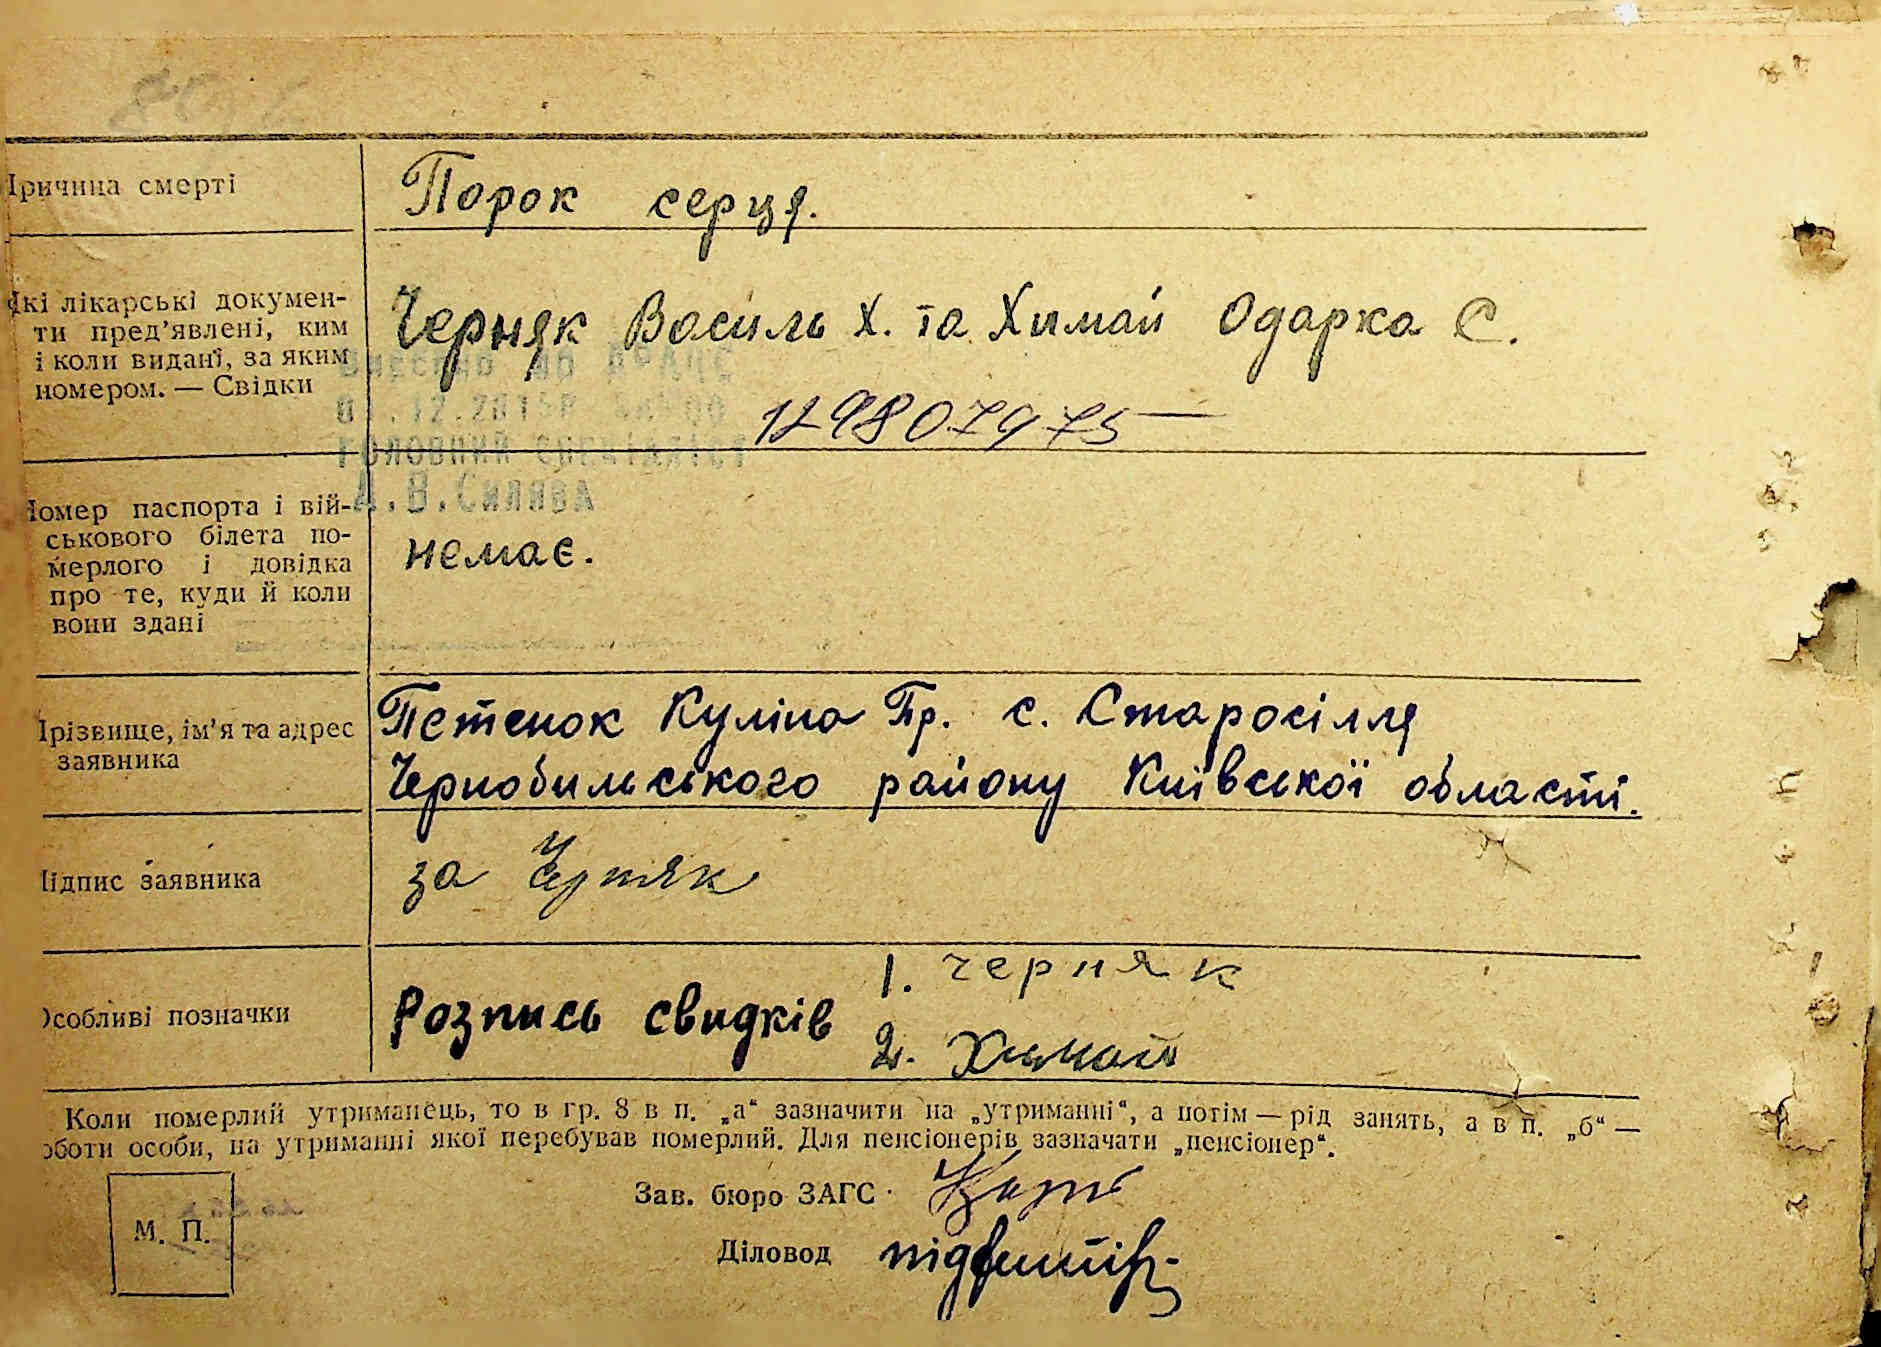 Причина смерті
Порок серця.
Які лікарські докумен-
ти пред'явлені, ким
і коли видані, за яким
номером. — Свідки
Черняк Василь Х. та Химай Одарка С.
Внесено до ДРАЦС
ГОЛОВНИЙ СПЕЦІАЛІСТ
Номер паспорта і вій-
ськового білета по-
мерлого і довідка
про те, куди й коли
вони здані
немає.
Прізвище, ім'я та адрес
заявника
Петенок Куліна Гр. с. Старосілля
Чернобильського району Київської області.
Підпис заявника
за Черняк
Особливі позначки
Розпись свидків
1. Черняк
2. Химай
Коли померлий утриманець, то в гр. 8 в п. „а“ зазначити на „утриманні“, а потім — рід занять, а в п. „б“ —
роботи особи, на утриманні якої перебував померлий. Для пенсіонерів зазначати „пенсіонер“.
М. П.
Зав. бюро ЗАГС
Діловод